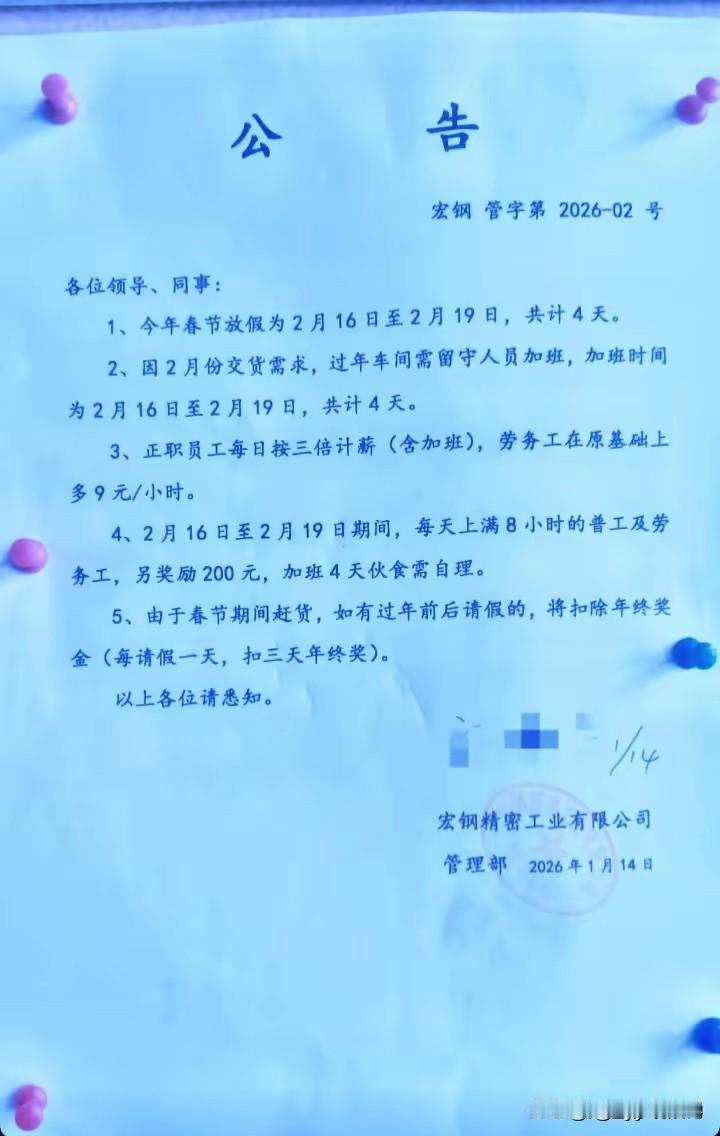 公 告
宏钢 管字第 2026-02 号
各位领导、同事：
1、今年春节放假为2月16日至2月19日，共计4天。
2、因2月份交货需求，过年车间需留守人员加班，加班时间
为2月16日至2月19日，共计4天。
3、正职员工每日按三倍计薪（含加班），劳务工在原基础上
多9元/小时。
4、2月16日至2月19日期间，每天上满8小时的普工及劳
务工，另奖励200元，加班4天伙食需自理。
5、由于春节期间赶货，如有过年前后请假的，将扣除年终奖
金（每请假一天，扣三天年终奖）。
以上各位请悉知。
1/14
宏钢精密工业有限公司
管理部 2026年1月14日